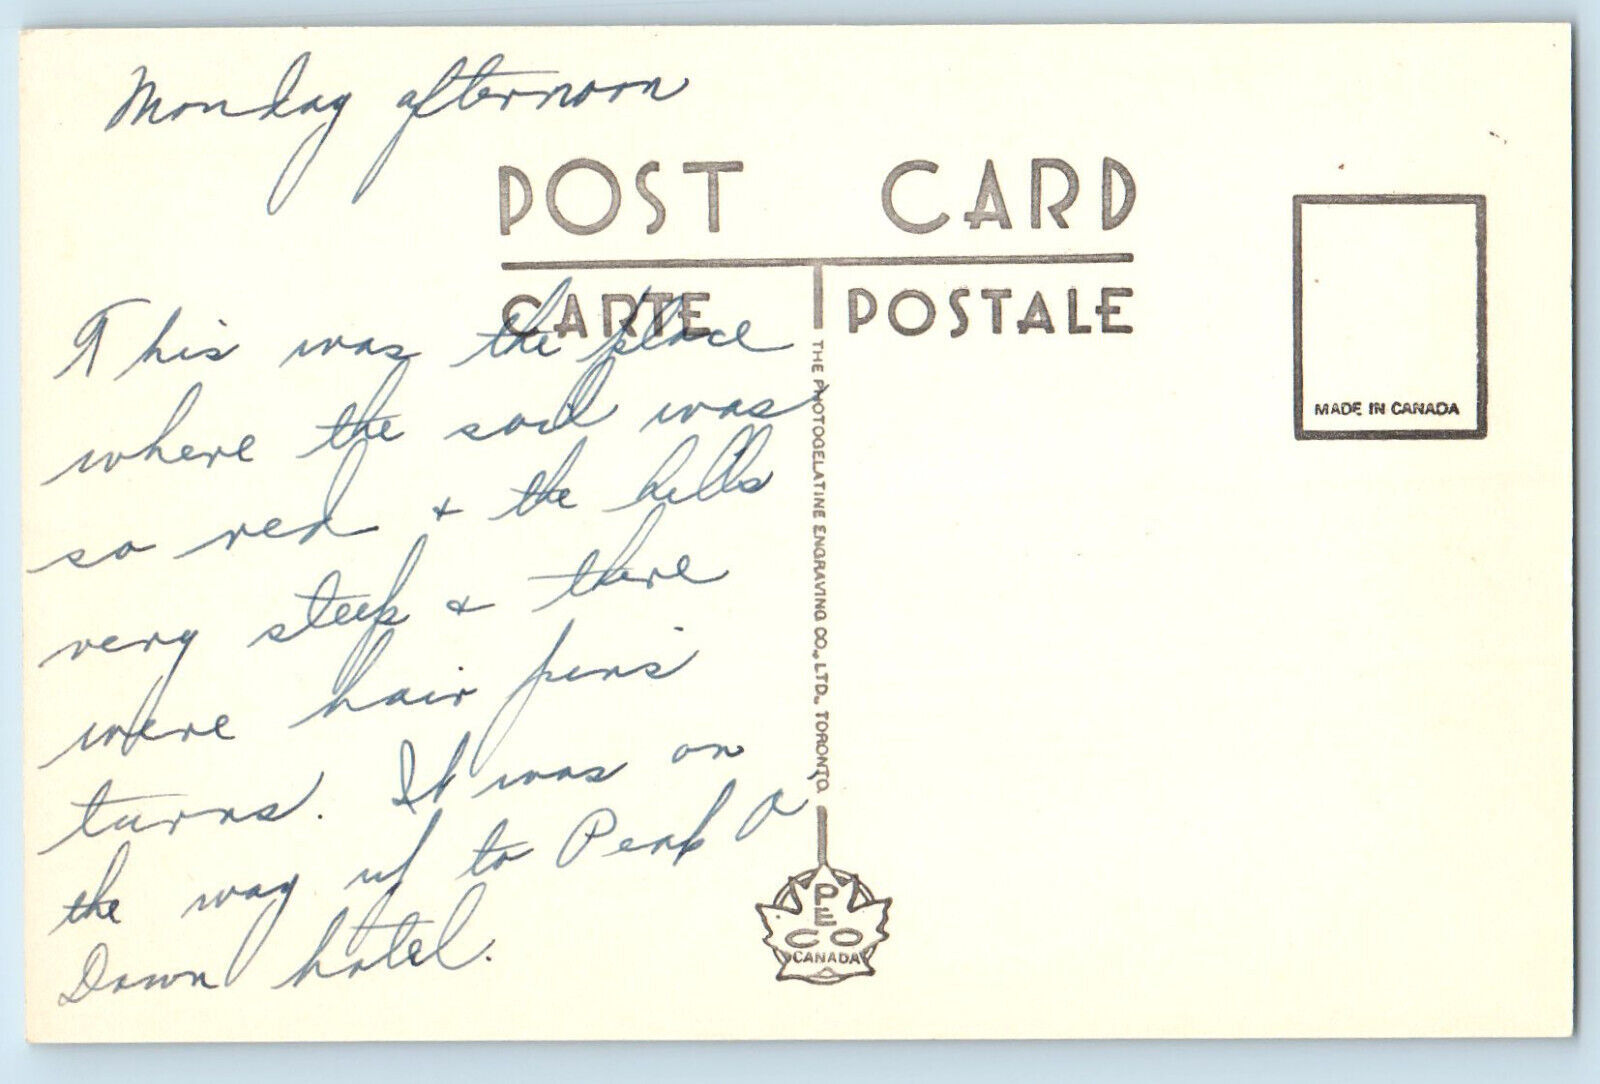 Monday afternoon
POST CARD
CARTE POSTALE
This was the place
where the soil was
so red & the hills
very steep & there
were hair pins
turns. It was on
the way up to Peak A
Dawn hotel.
THE PHOTOGELATINE ENGRAVING CO., LTD., TORONTO
PECO
CANADA
MADE IN CANADA